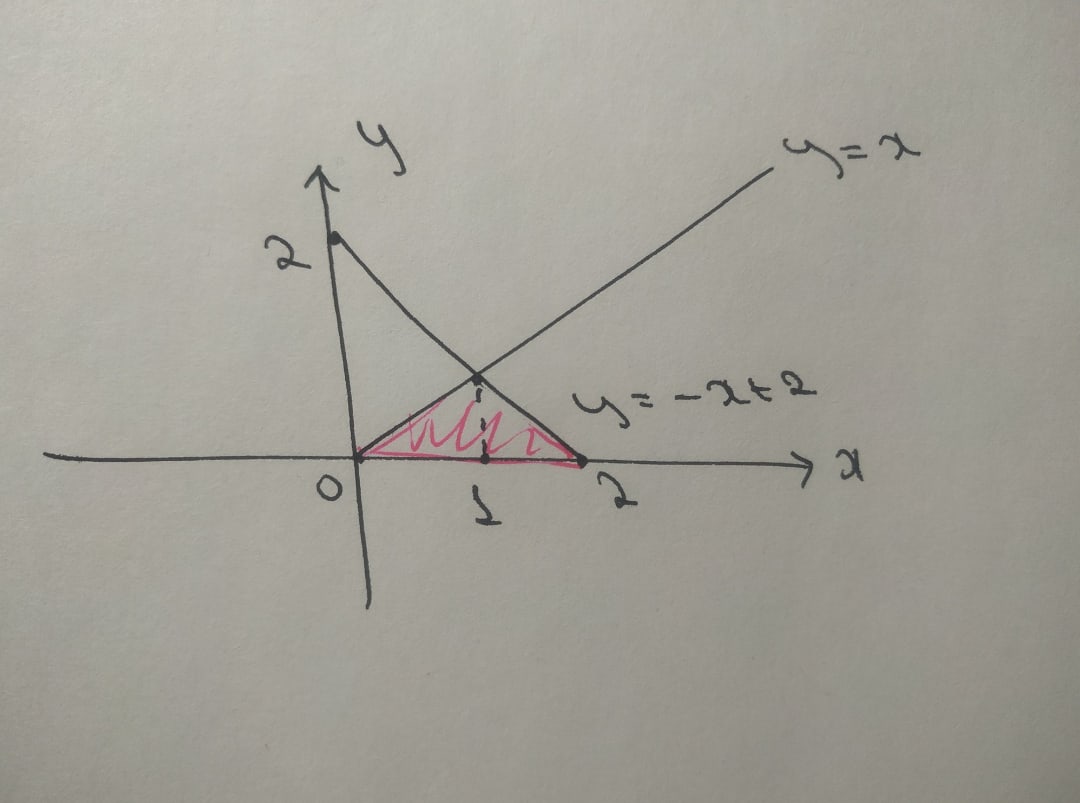 y
y = x
2
y = -x+2
0
1
2
x